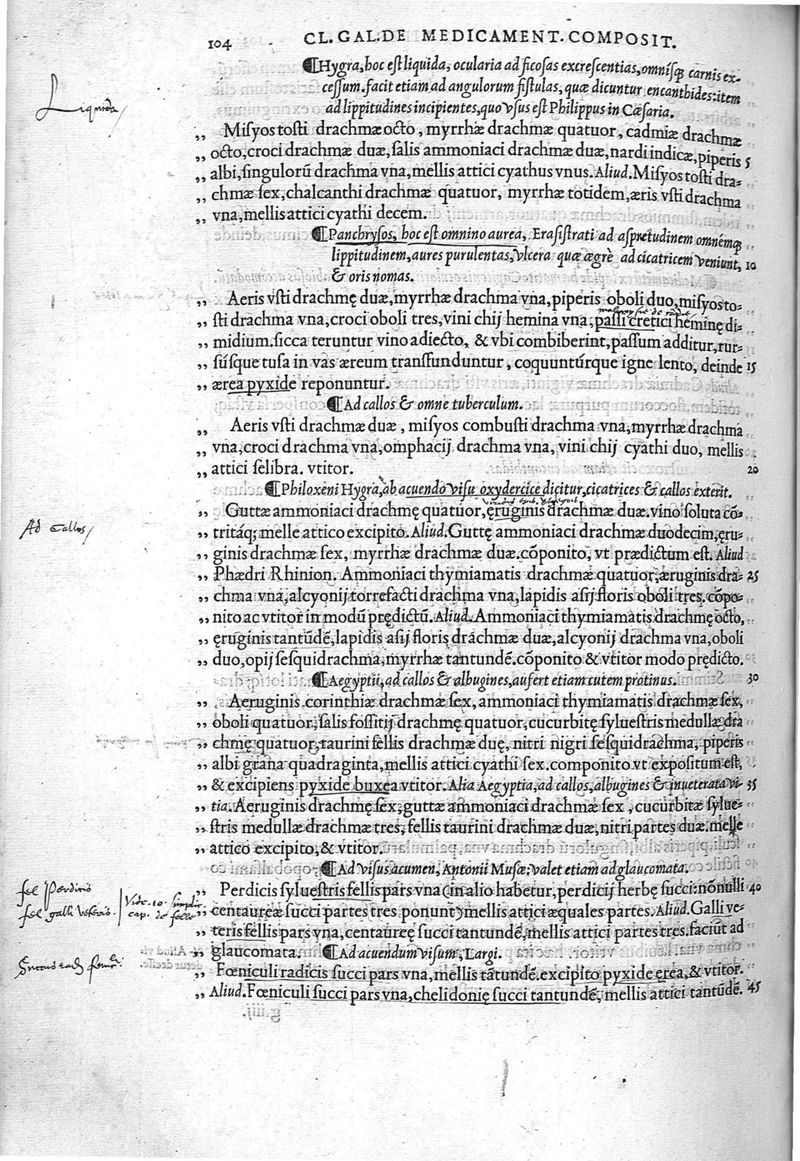 104 CL. GAL. DE MEDICAMENT. COMPOSIT.
¶Hygra, hoc est liquida, ocularia ad ficosas excrescentias, omnisq́; carnis ex-
cessum. facit etiam ad angulorum fistulas, quæ dicuntur encanthides: item
ad lippitudines incipientes, quo vsus est Philippus in Cæsaria.
Liquida
„ Misyos tosti drachmæ octo, myrrhæ drachmæ quatuor, cadmiæ drachmæ
„ octo, croci drachmæ duæ, salis ammoniaci drachmæ duæ, nardi indicæ, piperis 5
„ albi, singulorū drachma vna, mellis attici cyathus vnus. Aliud. Misyos tosti dra-
„ chmæ sex, chalcanthi drachmæ quatuor, myrrhæ totidem, æris vsti drachma
„ vna, mellis attici cyathi decem.
¶Panchrysos, hoc est omnino aurea, Erasistrati ad aspretudinem omnémq;
lippitudinem, aures purulentas, vlcera quæ ægrè ad cicatricem veniunt, 10
& oris nomas.
„ Aeris vsti drachmę duæ, myrrhæ drachma vna, piperis oboli duo, misyos to-
„ sti drachma vna, croci oboli tres, vini chij hemina vna, passi cretici heminę di-
„ midium. sicca teruntur vino adiecto, & vbi combiberint, passum additur, rur-
„ súsque tusa in vas æreum transfunduntur, coquuntúrque igne lento, deinde 15
„ ærea pyxide reponuntur.
¶Ad callos & omne tuberculum.
„ Aeris vsti drachmæ duæ, misyos combusti drachma vna, myrrhæ drachma
„ vna, croci drachma vna, omphacij drachma vna, vini chij cyathi duo, mellis
„ attici selibra. vtitor. 20
¶Philoxeni Hygra, ab acuendo visu oxydercice dicitur, cicatrices & callos exterit.
„ Guttæ ammoniaci drachmę quatuor, ęruginis drachmæ duæ. vino soluta cō-
Ad Callos
„ tritáq; melle attico excipito. Aliud. Guttę ammoniaci drachmæ duodecim, ęru-
„ ginis drachmæ sex, myrrhæ drachmæ duæ. cōponito, vt prædictum est. Aliud
„ Phædri Rhinion. Ammoniaci thymiamatis drachmæ quatuor, æruginis dra- 25
„ chma vna, alcyonij torrefacti drachma vna, lapidis asij floris oboli tres. cōpo-
„ nito ac vtitor in modū prędictū. Aliud. Ammoniaci thymiamatis drachmę octo,
„ ęruginis tantūdē, lapidis asij floris drachmæ duæ, alcyonij drachma vna, oboli
„ duo, opij sesquidrachma, myrrhæ tantundē. cōponito & vtitor modo prędicto.
¶Aegyptii, ad callos & albugines, aufert etiam cutem protinus. 30
„ Aeruginis corinthiæ drachmæ sex, ammoniaci thymiamatis drachmæ sex,
„ oboli quatuor, salis fossitij drachmę quatuor, cucurbitę syluestris medullæ dra
„ chmę quatuor, taurini fellis drachmæ duę, nitri nigri sesquidrachma, piperis
„ albi grana quadraginta, mellis attici cyathi sex. componito vt expositum est,
„ & excipiens pyxide buxea vtitor. Alia Aegyptia, ad callos, albugines & inueterata vi- 35
„ tia. Aeruginis drachmę sex, guttæ ammoniaci drachmæ sex, cucurbitæ sylue-
„ stris medullæ drachmæ tres, fellis taurini drachmæ duæ, nitri partes duæ. melle
„ attico excipito, & vtitor.
¶Ad visus acumen, Antonii Musæ: valet etiam ad glaucomata.
fel Perdicis
„ Perdicis syluestris fellis pars vna (in alio habetur, perdicij herbę succi: nōnulli 40
fel galli veteris. Vide. 10. simplic. cap. de felle
„ centaureæ succi partes tres ponunt) mellis attici æquales partes. Aliud. Galli ve-
„ teris fellis pars vna, centaureę succi tantundē, mellis attici partes tres. faciūt ad
„ glaucomata. ¶Ad acuendum visum, Largi.
„ Fœniculi radicis succi pars vna, mellis tātundē. excipito pyxide ęrea, & vtitor.
„ Aliud. Fœniculi succi pars vna, chelidonię succi tantundē, mellis attici tantūdē. 45